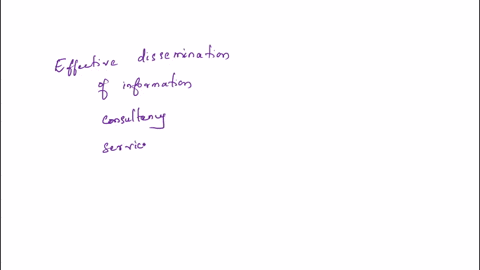 Effective dissemination
of information
consultancy
servic